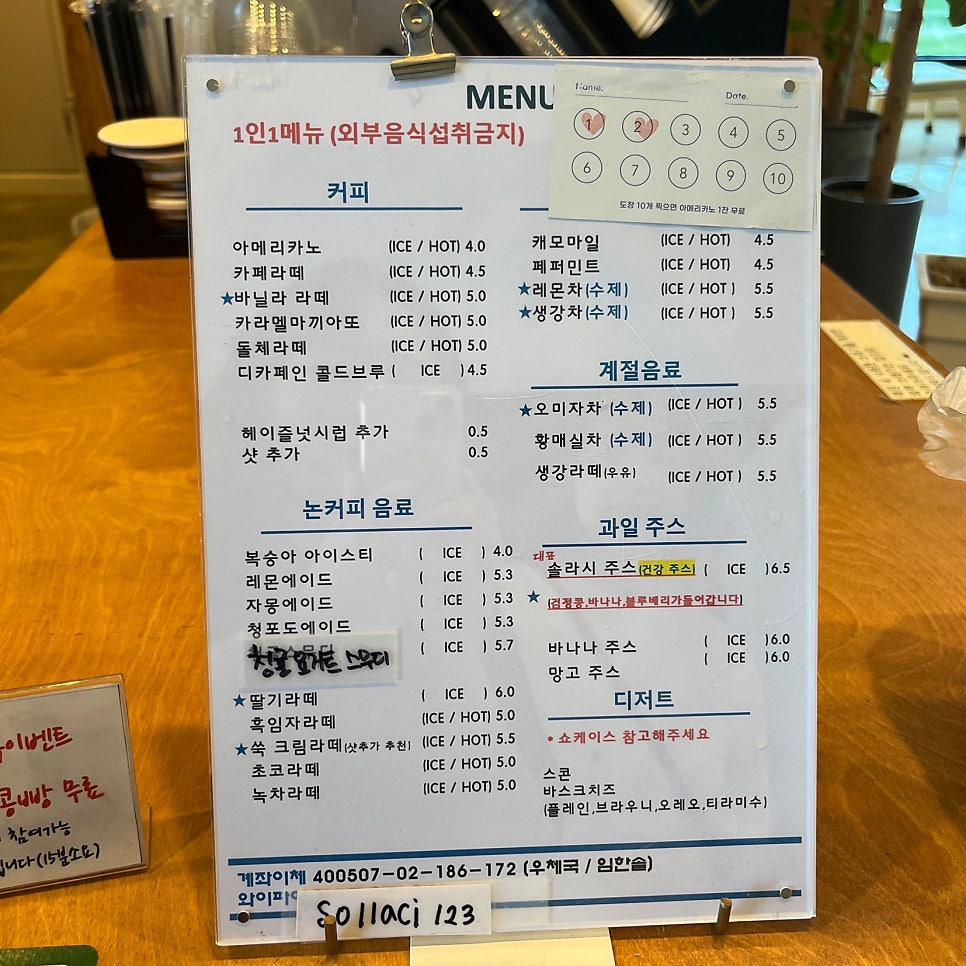 MENU
1인1메뉴 (외부음식섭취금지)
Name.
Date.
1 2 3 4 5
6 7 8 9 10
도장 10개 찍으면 아메리카노 1잔 무료
커피
아메리카노 (ICE / HOT) 4.0
카페라떼 (ICE / HOT) 4.5
★바닐라 라떼 (ICE / HOT) 5.0
카라멜마끼아또 (ICE / HOT) 5.0
돌체라떼 (ICE / HOT) 5.0
디카페인 콜드브루 ( ICE ) 4.5
헤이즐넛시럽 추가 0.5
샷 추가 0.5
논커피 음료
복숭아 아이스티 ( ICE ) 4.0
레몬에이드 ( ICE ) 5.3
자몽에이드 ( ICE ) 5.3
청포도에이드 ( ICE ) 5.3
요거트 스무디 ( ICE ) 5.7
★딸기라떼 ( ICE ) 6.0
흑임자라떼 (ICE / HOT) 5.0
★쑥 크림라떼(샷추가 추천) (ICE / HOT) 5.5
초코라떼 (ICE / HOT) 5.0
녹차라떼 (ICE / HOT) 5.0
캐모마일 (ICE / HOT) 4.5
페퍼민트 (ICE / HOT) 4.5
★레몬차(수제) (ICE / HOT ) 5.5
★생강차(수제) (ICE / HOT ) 5.5
계절음료
★오미자차 (수제) (ICE / HOT ) 5.5
황매실차 (수제) (ICE / HOT ) 5.5
생강라떼(우유) (ICE / HOT ) 5.5
과일 주스
대표
솔라시 주스(건강 주스) ( ICE ) 6.5
★ (검정콩,바나나,블루베리가들어갑니다)
바나나 주스 ( ICE ) 6.0
망고 주스 ( ICE ) 6.0
디저트
• 쇼케이스 참고해주세요
스콘
바스크치즈
(플레인,브라우니,오레오,티라미수)
계좌이체 400507-02-186-172 (우체국 / 임한솔)
와이파이
Sollaci 123
이벤트
콩빵 무료
참여가능
니다 (15분소요)